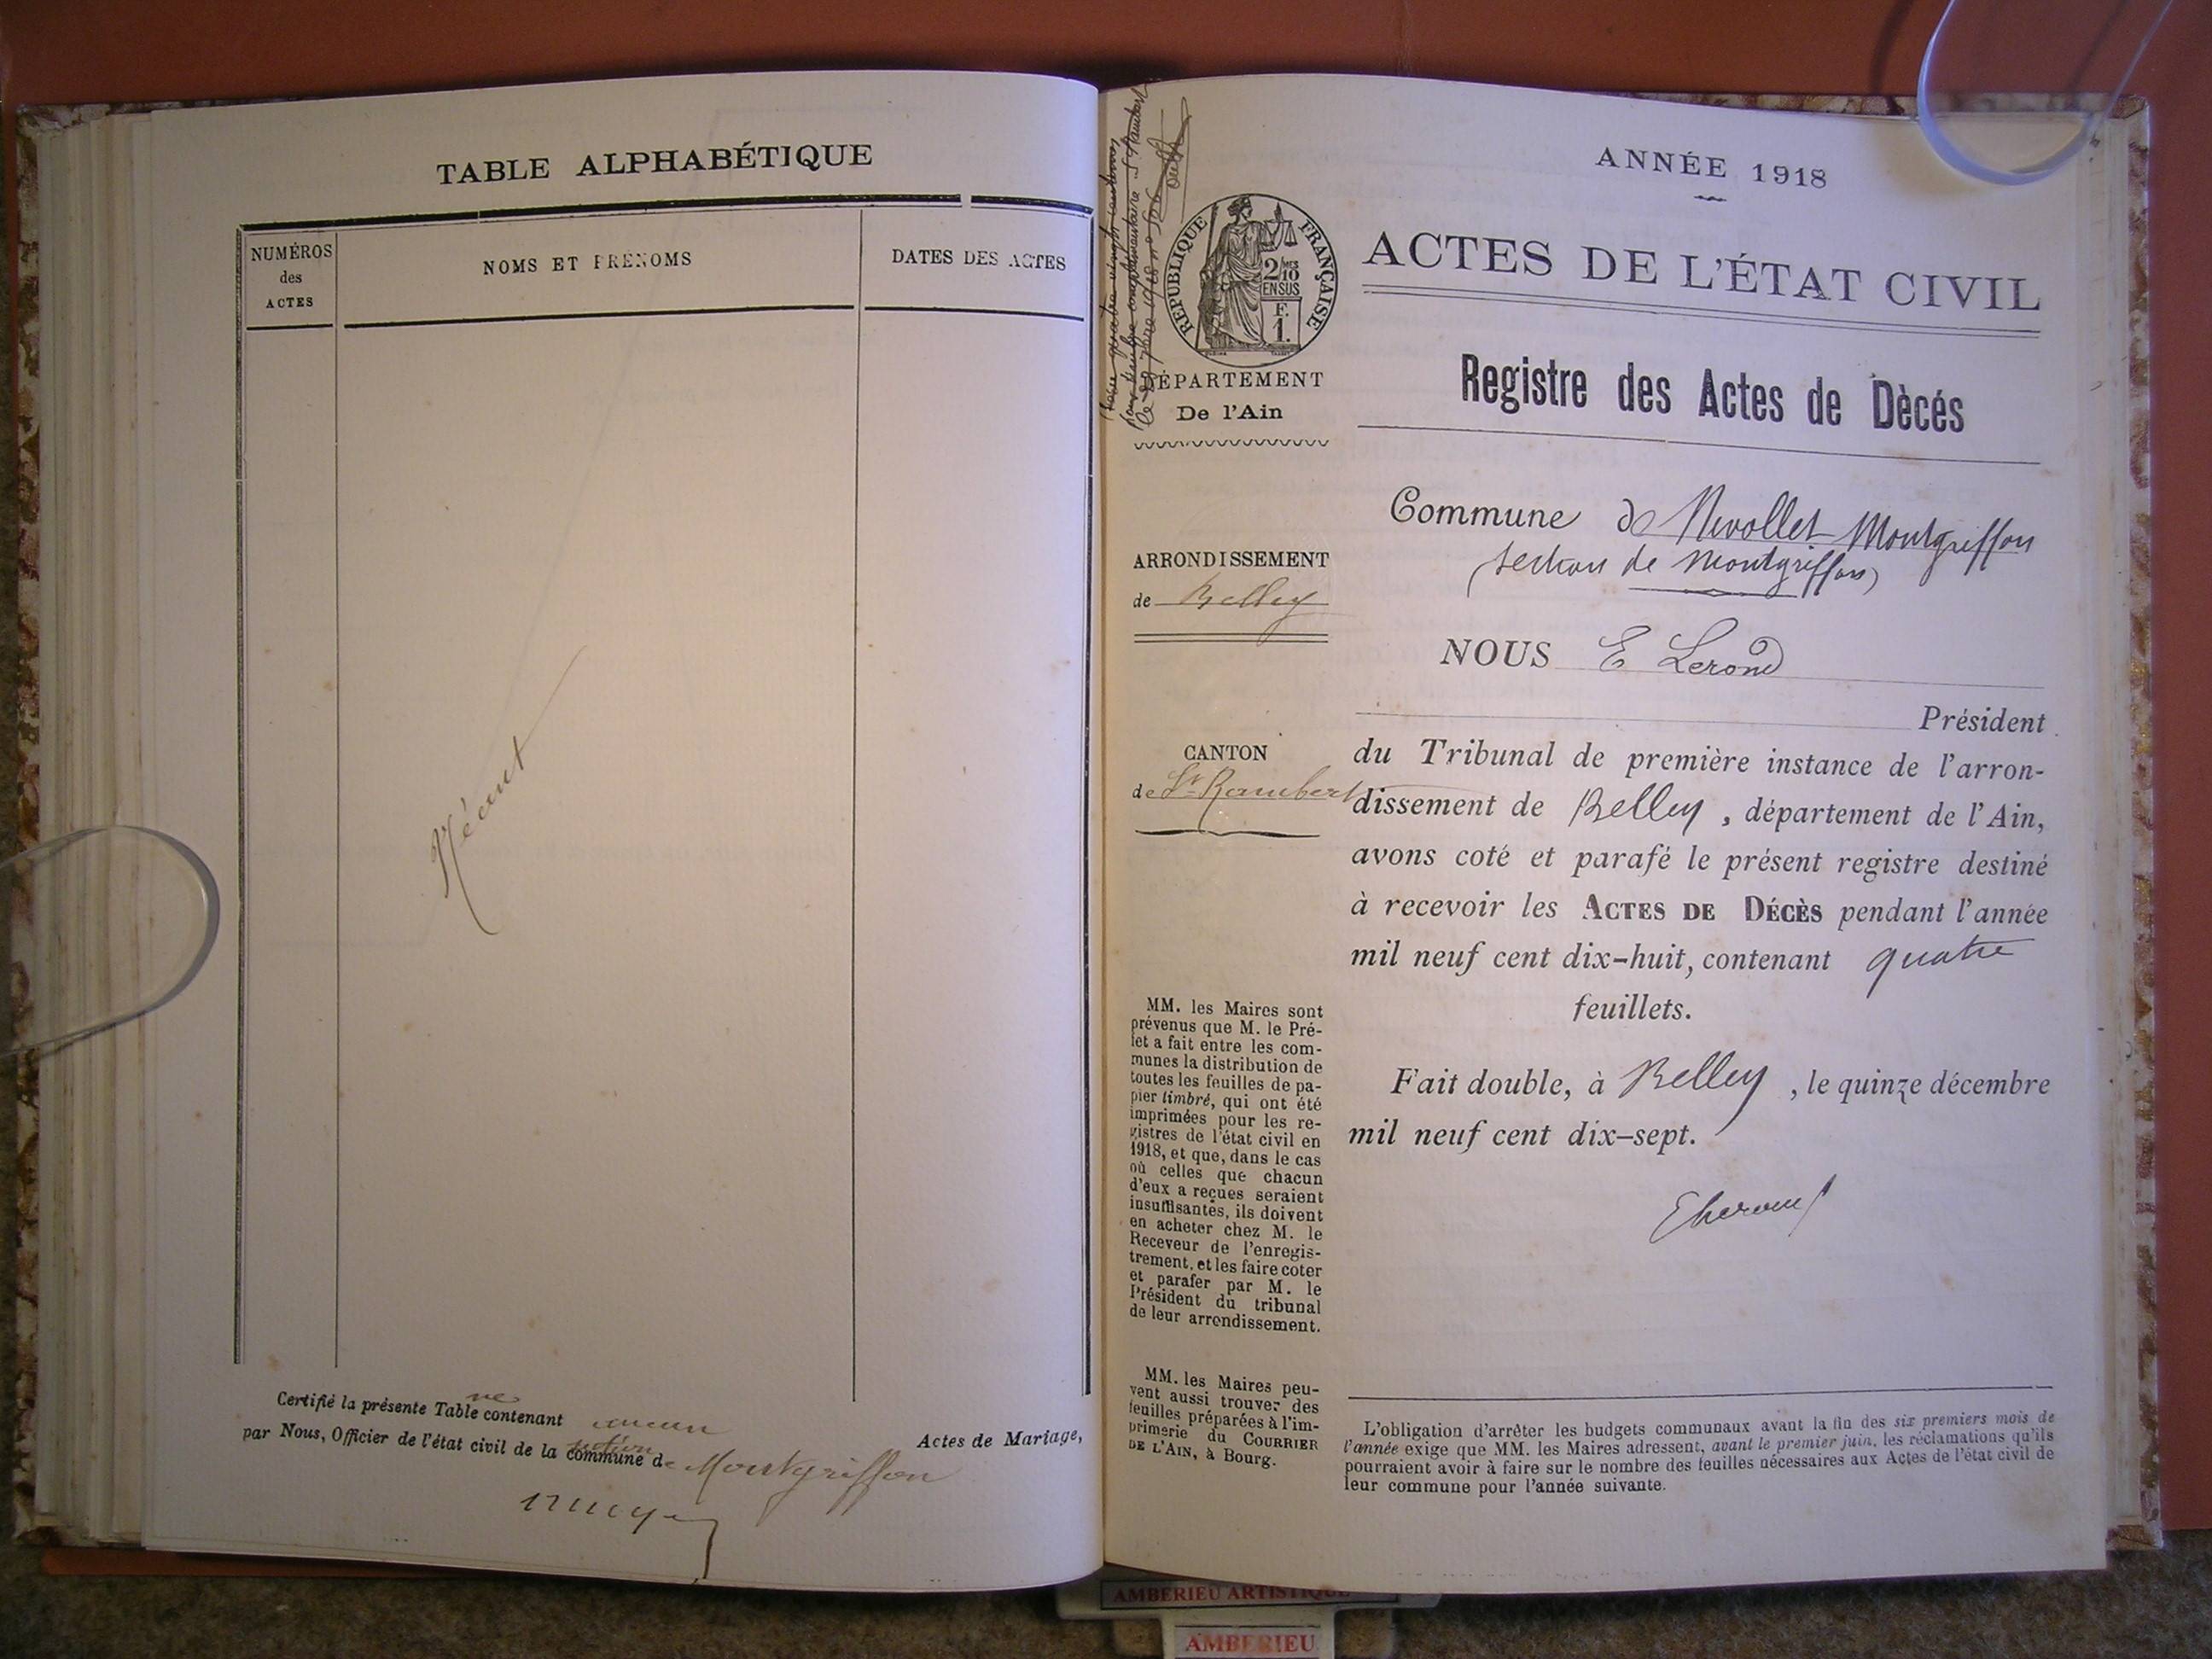 TABLE ALPHABÉTIQUE
NUMÉROS
des
ACTES
NOMS ET PRÉNOMS
DATES DES ACTES
Néant
Certifié la présente Table ne contenant aucun Actes de Mariage,
par Nous, Officier de l'état civil de la commune section de Montgriffon
DÉPARTEMENT
De l'Ain
RÉPUBLIQUE FRANÇAISE
2/10 MES
EN SUS
F.
1.
ARRONDISSEMENT
de Belley
CANTON
de St Rambert
MM. les Maires sont
prévenus que M. le Pré-
fet a fait entre les com-
munes la distribution de
toutes les feuilles de pa-
pier timbré, qui ont été
imprimées pour les re-
gistres de l'état civil en
1918, et que, dans le cas
où celles que chacun
d'eux a reçues seraient
insuffisantes, ils doivent
en acheter chez M. le
Receveur de l'enregis-
trement, et les faire coter
et parafer par M. le
Président du tribunal
de leur arrondissement.
MM. les Maires peu-
vent aussi trouver des
feuilles préparées à l'im-
primerie du COURRIER
DE L'AIN, à Bourg.
ANNÉE 1918
ACTES DE L'ÉTAT CIVIL
Registre des Actes de Dècés
Commune de Nivollet Montgriffon
(section de Montgriffon)
NOUS E Lerond
Président
du Tribunal de première instance de l'arron-
dissement de Belley, département de l'Ain,
avons coté et parafé le présent registre destiné
à recevoir les ACTES DE DÉCÈS pendant l'année
mil neuf cent dix-huit, contenant quatre
feuillets.
Fait double, à Belley, le quinze décembre
mil neuf cent dix-sept.
L'obligation d'arrêter les budgets communaux avant la fin des six premiers mois de
l'année exige que MM. les Maires adressent, avant le premier juin, les réclamations qu'ils
pourraient avoir à faire sur le nombre des feuilles nécessaires aux Actes de l'état civil de
leur commune pour l'année suivante.
AMBERIEU ARTISTIQUE
AMBERIEU